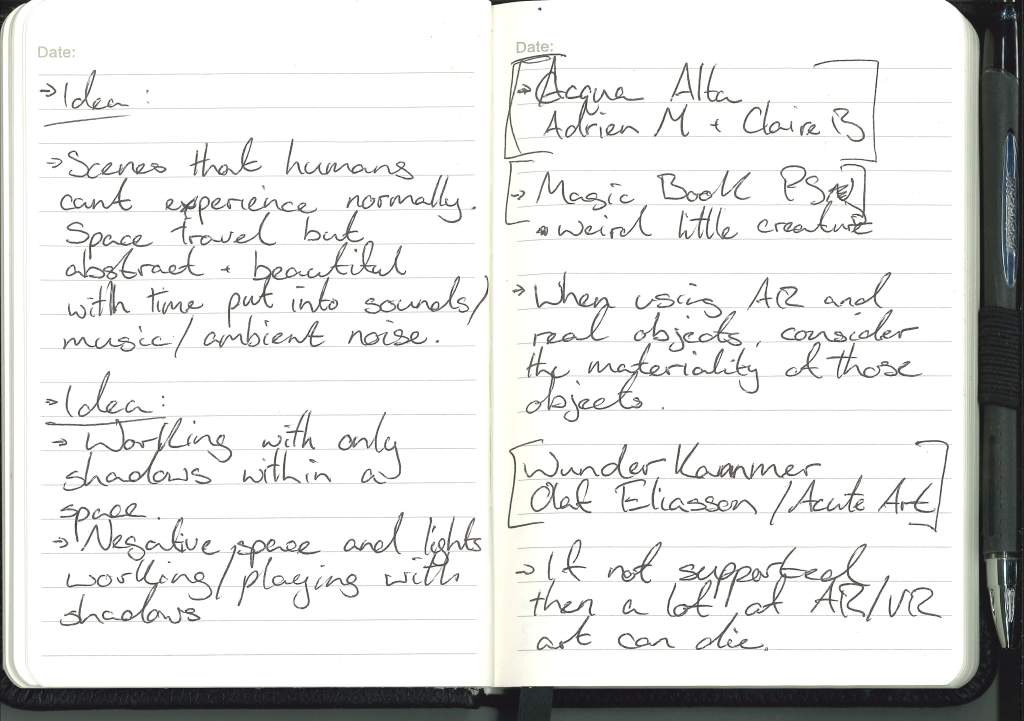 Date:
→ Idea :
→ Scenes that humans
cant experience normally.
Space travel but
abstract + beautiful
with time put into sounds/
music/ambient noise.
→ Idea :
→ Working with only
shadows within a
space.
→ Negative space and lights
working/playing with
shadows
Date:
→ Acqua Alta
Adrien M + Claire B
→ Magic Book PS
weird little creature
→ When using AR and
real objects, consider
the materiality of those
objects.
Wunder Kammer
Olaf Eliasson / Acute Art
→ If not supported
then a lot of AR/VR
art can die.